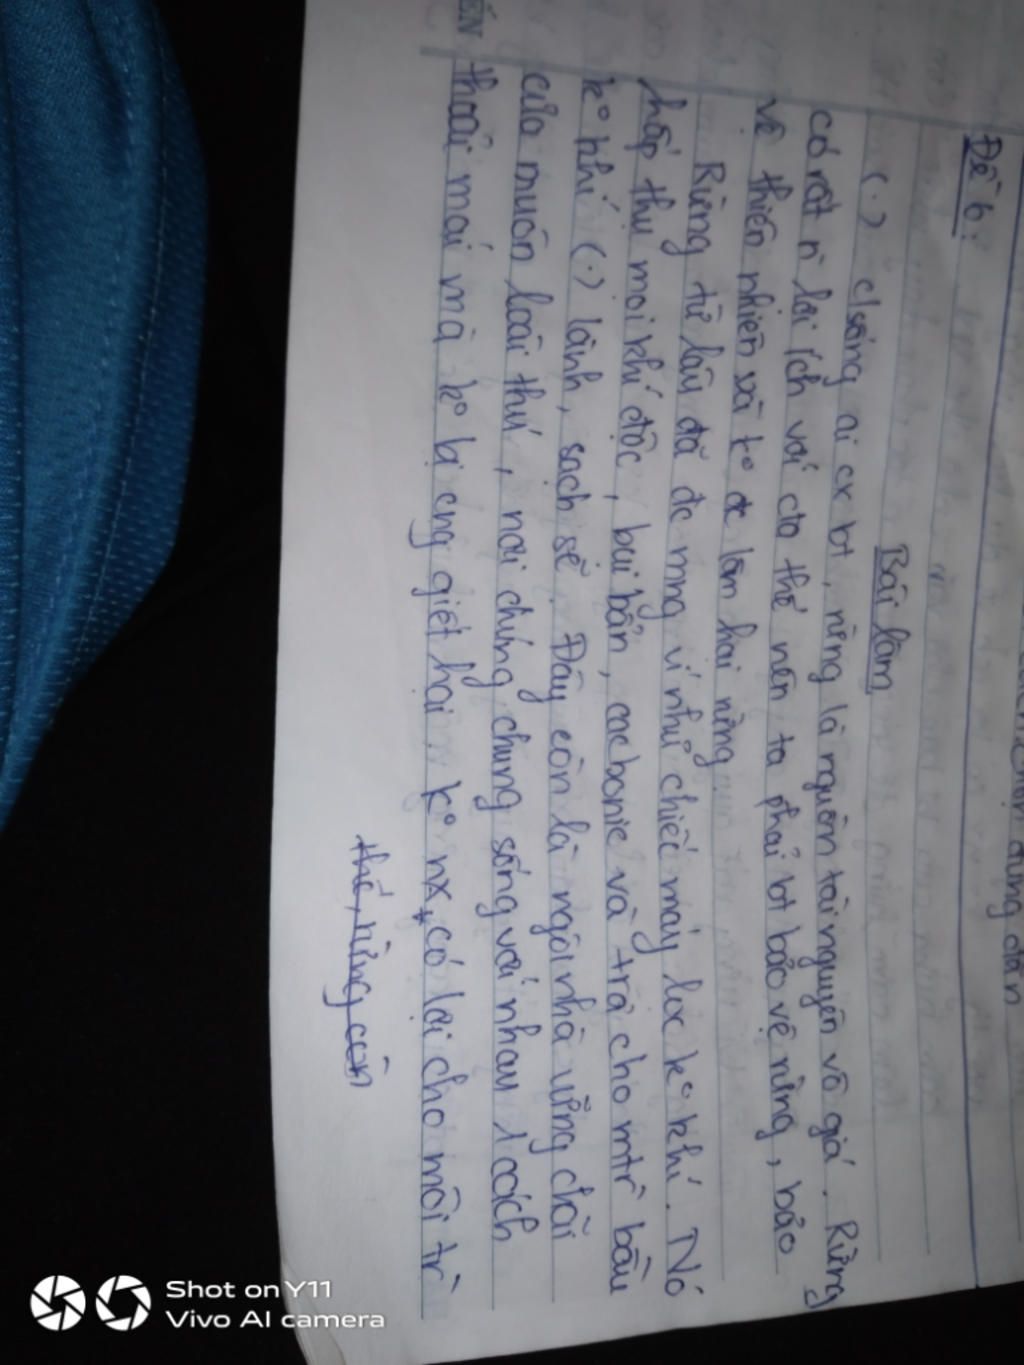 dung dẫn
Đề 6:
Bài làm
(.) c/sống ai cx bt, rừng là nguồn tài nguyên vô giá. Rừng
có rất n` lợi ích với cta thế nên ta phải bt bảo vệ rừng, bảo
vệ thiên nhiên và ko đc làm hại rừng
Rừng từ lâu đã đc mng ví như chiếc máy lọc ko khí. Nó
hấp thụ mọi khí độc, bụi bẩn, cacbonic và trả cho mtr` bầu
ko khí (.) lành, sạch sẽ. Đây còn là ngôi nhà ưng chãi
của muôn loài thú, nơi chúng chung sống với nhau 1 cách
thoải mái mà ko bị cng giết hại. ko nx, có lợi cho môi tr`
thế, rừng còn
ẾN
Shot on Y11
Vivo AI camera